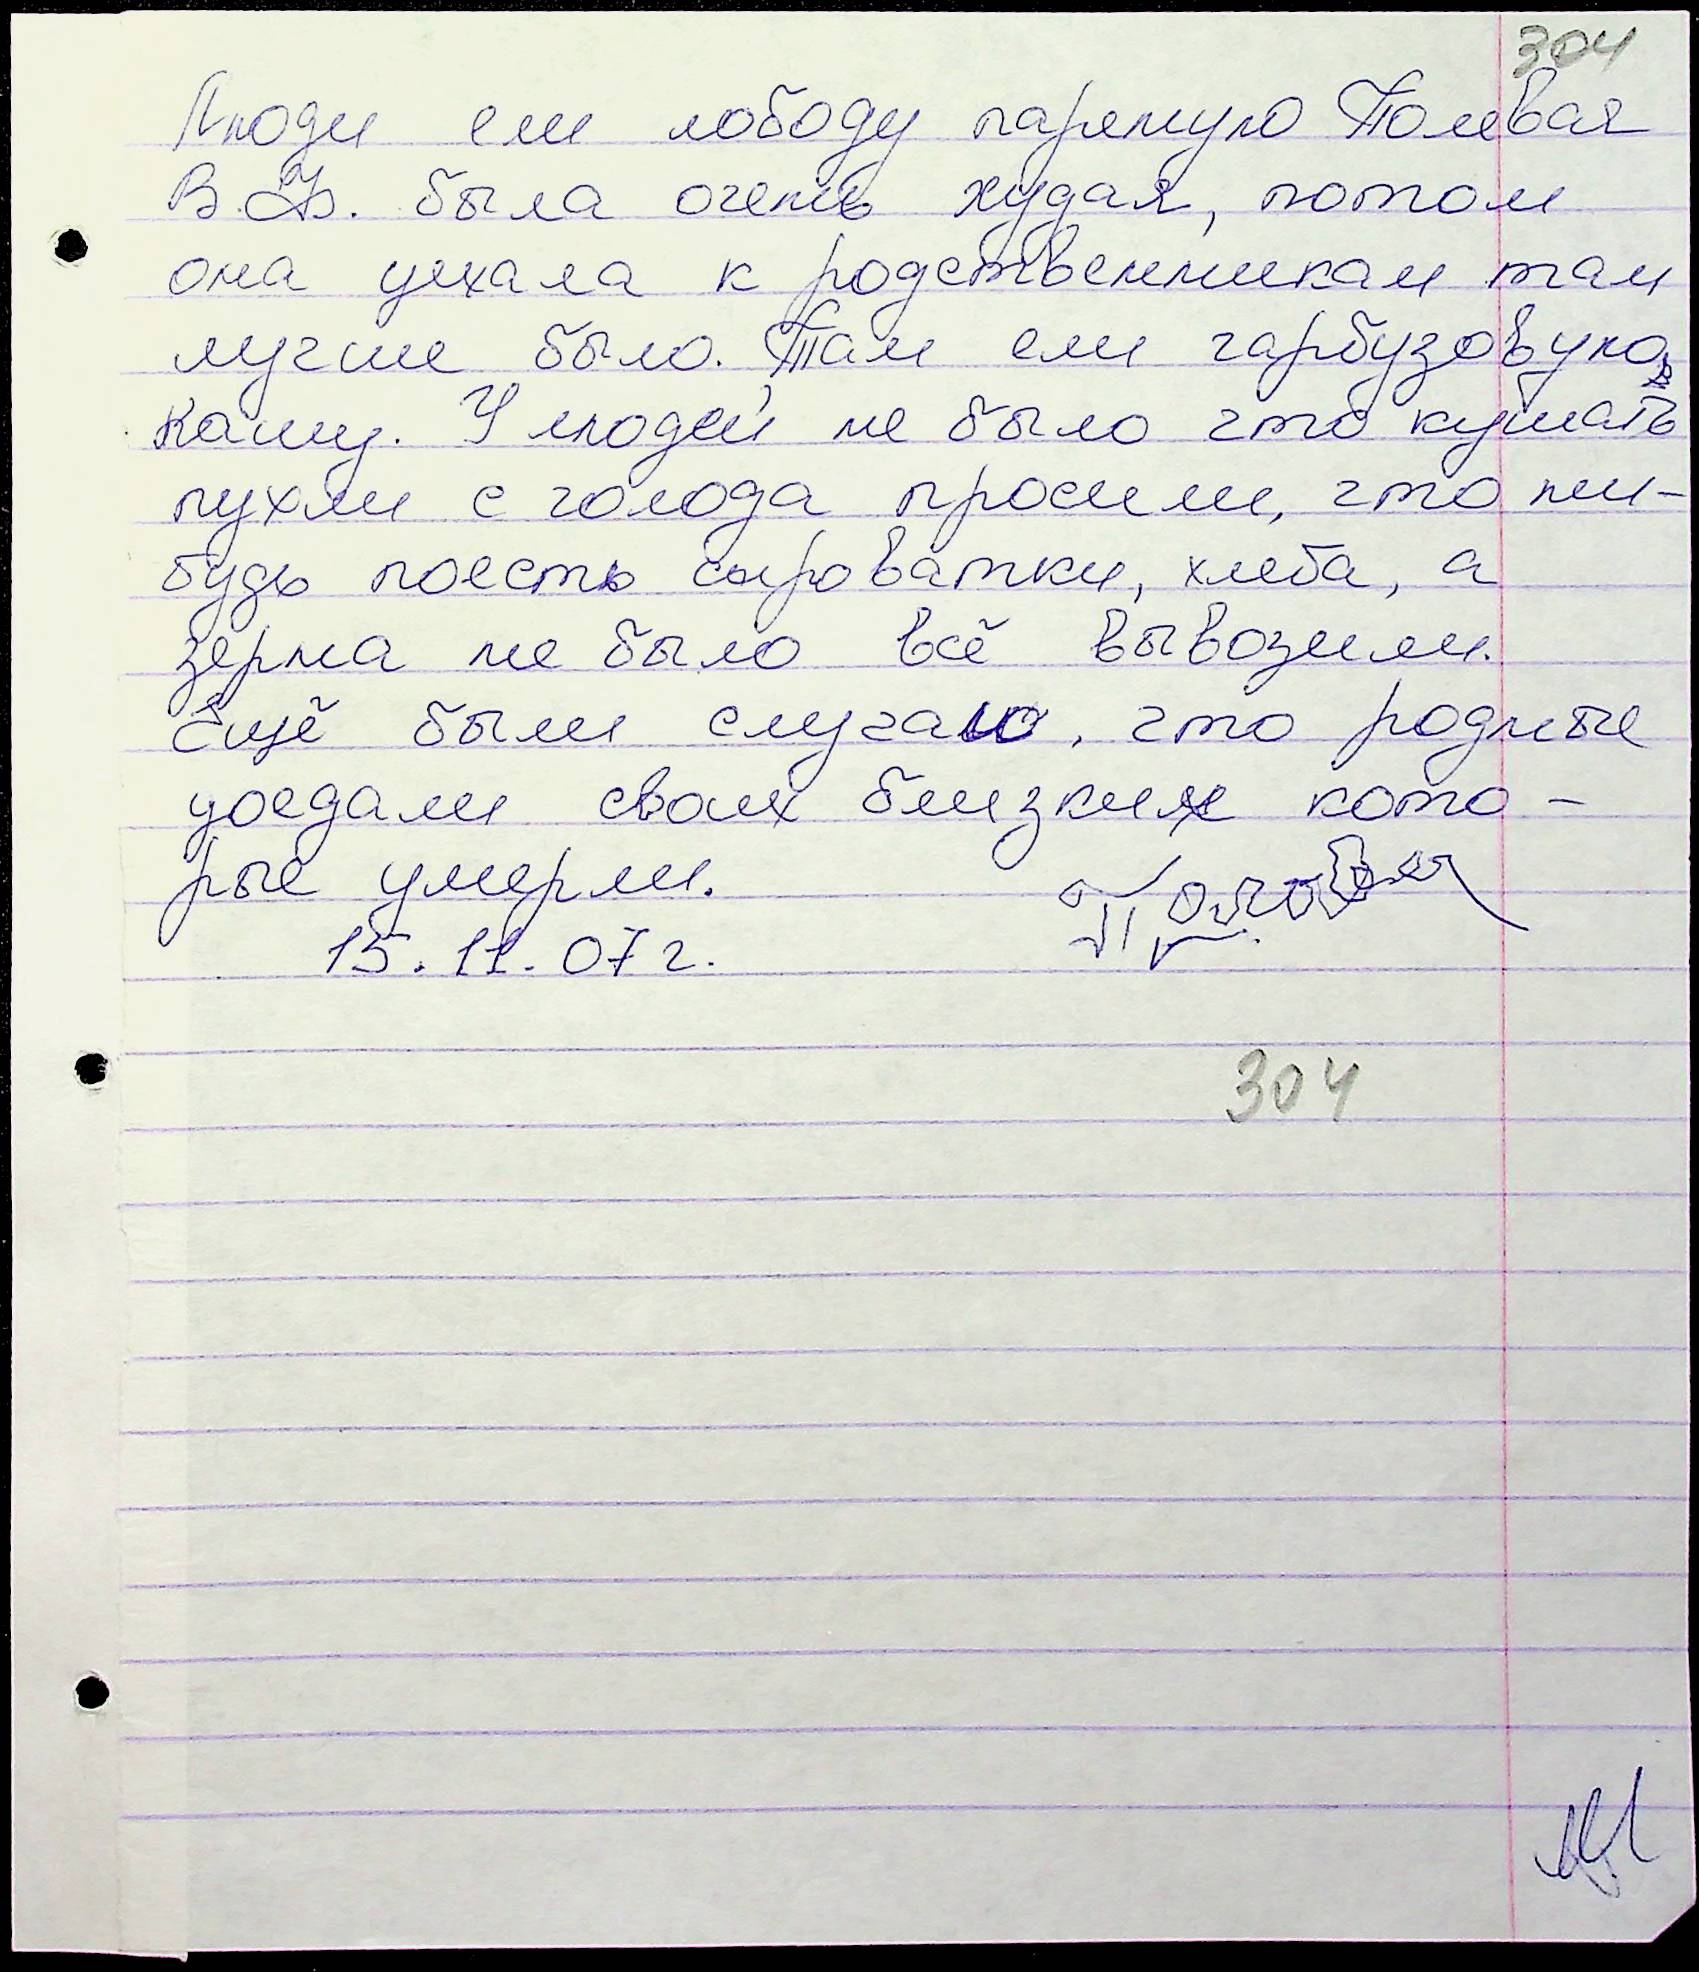 304
Люди ели лободу паряную Полевая
В.Ф. была очень худая, потом
она уехала к родственникам там
лучше было. Там ели гарбузовую
кашу. У людей не было что кушать
пухли с голода просили, что ни-
будь поесть сыроватки, хлеба, а
зерна не было всё вывозили.
Ещё были случаи, что родные
уоедали своих близких кото-
рые умерли.
15.11.07 г.
304